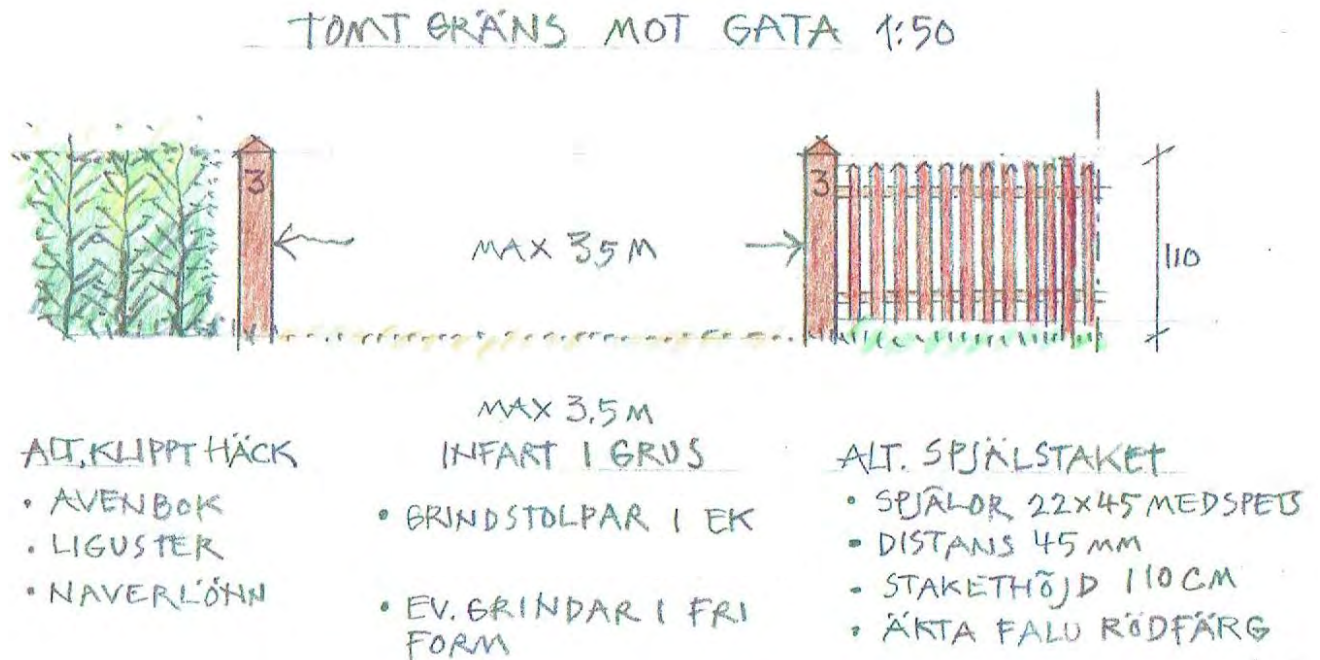 TOMTGRÄNS MOT GATA 1:50
3
3
MAX 3,5 M
110
MAX 3,5 M
ALT. KLIPPT HÄCK
• AVENBOK
• LIGUSTER
• NAVERLÖNN
INFART I GRUS
• GRINDSTOLPAR I EK
• EV. GRINDAR I FRI
FORM
ALT. SPJÄLSTAKET
• SPJÄLOR 22x45 MED SPETS
• DISTANS 45 MM
• STAKETHÖJD 110 CM
• ÄKTA FALU RÖDFÄRG